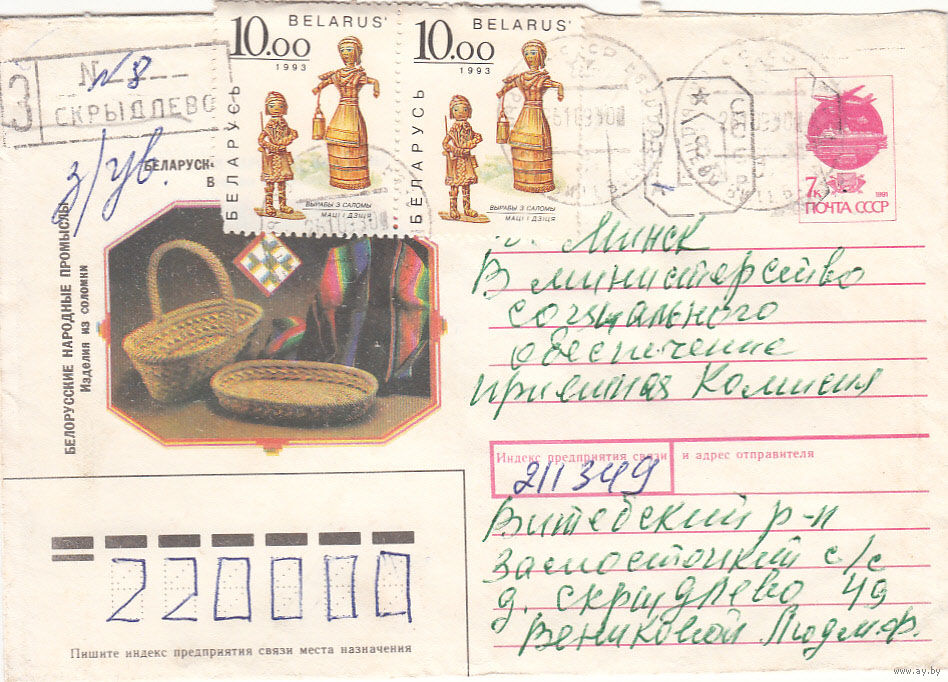 BELARUS'
10.00
1993
БЕЛАРУСЬ
ВЫРАБЫ З САЛОМЫ
МАЦІ І ДЗІЦЯ
BELARUS'
10.00
1993
БЕЛАРУСЬ
ВЫРАБЫ З САЛОМЫ
МАЦІ І ДЗІЦЯ
З
N 8
СКРЫДЛЕВО
з/ув.
БЕЛАРУСК
В
7к
1991
ПОЧТА СССР
БЕЛОРУССКИЕ НАРОДНЫЕ ПРОМЫСЛЫ
Изделия из соломки
Минск
В министерство
социального
обеспечение
приемная Комисия
Индекс предприятия связи и адрес отправителя
211349
Витебский р-н
с/с
д. Скрыдлево 49
Вениковой
220000
Пишите индекс предприятия связи места назначения
www.ay.by